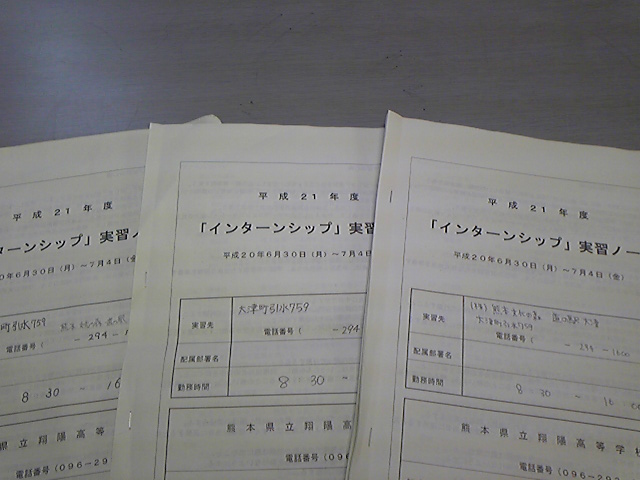 平成21年度
ターンシップ」実習ノ
0年6月30日（月）～7月4日（金
町引水759
電話番号（ －294－1
8 30 ～ 16
県立翔陽高等
電話番号（096－29
平成21年度
「インターンシップ」実習
平成20年6月30日（月）～7月4日
実習先
大津町引水759
電話番号（ －294
配属部署名
勤務時間
8 30 ～
熊本県立翔陽高
電話番号（096
平成21年度
「インターンシップ」実習ノー
平成20年6月30日（月）～7月4日（金）
実習先
大津町引水759
電話番号（ － 294 － 1600
配属部署名
勤務時間
8 30 ～ 16 00
熊本県立翔陽高等学校
電話番号（096－293